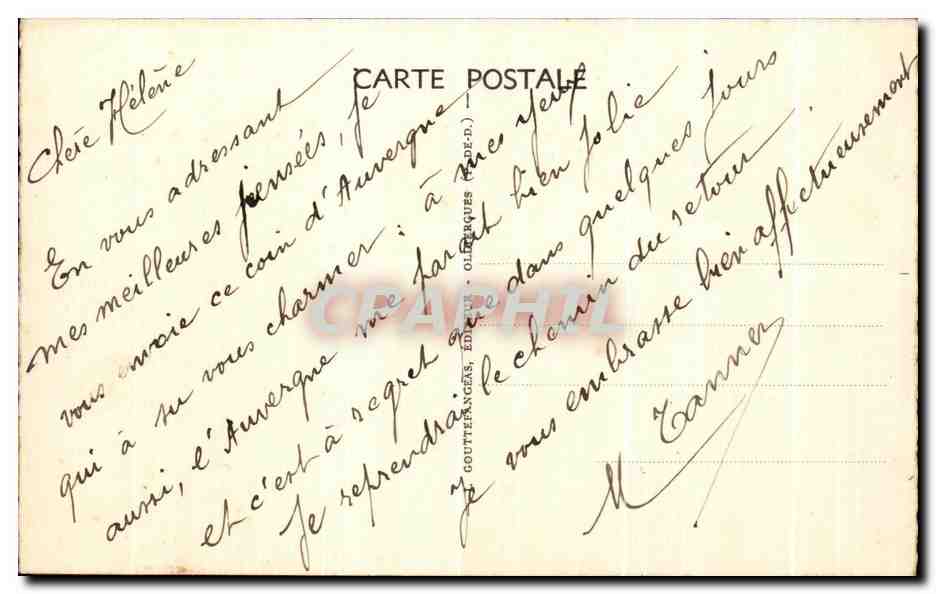 CARTE POSTALE
Chère Hélène
En vous adressant
mes meilleures pensées, je
vous envoie ce coin d'Auvergne
qui à su vous charmer : à mes yeux
aussi, l'Auvergne me parait bien jolie
et c'est à regret que dans quelques jours
je reprendrai le chemin du retour
Je vous embrasse bien affectueusement
M Tanner
GOUTTEFANGEAS, EDITEUR - OLLIERGUES (P.-DE-D.)
CPAPHIL